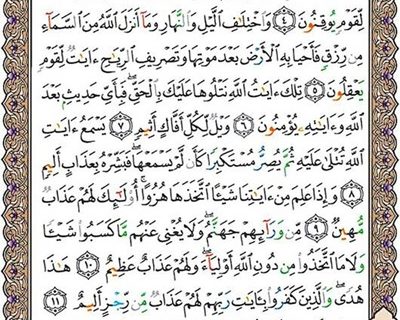 لِّقَوْمٍ يُوقِنُونَ ٤ وَٱخْتِلَٰفِ ٱلَّيْلِ وَٱلنَّهَارِ وَمَآ أَنزَلَ ٱللَّهُ مِنَ ٱلسَّمَآءِ
مِن رِّزْقٍ فَأَحْيَا بِهِ ٱلْأَرْضَ بَعْدَ مَوْتِهَا وَتَصْرِيفِ ٱلرِّيَٰحِ ءَايَٰتٌ لِّقَوْمٍ
يَعْقِلُونَ ٥ تِلْكَ ءَايَٰتُ ٱللَّهِ نَتْلُوهَا عَلَيْكَ بِٱلْحَقِّ ۖ فَبِأَىِّ حَدِيثٍۭ بَعْدَ
ٱللَّهِ وَءَايَٰتِهِۦ يُؤْمِنُونَ ٦ وَيْلٌ لِّكُلِّ أَفَّاكٍ أَثِيمٍ ٧ يَسْمَعُ ءَايَٰتِ
ٱللَّهِ تُتْلَىٰ عَلَيْهِ ثُمَّ يُصِرُّ مُسْتَكْبِرًا كَأَن لَّمْ يَسْمَعْهَا ۖ فَبَشِّرْهُ بِعَذَابٍ أَلِيمٍ
٨ وَإِذَا عَلِمَ مِنْ ءَايَٰتِنَا شَيْـًٔا ٱتَّخَذَهَا هُزُوًا ۚ أُو۟لَٰٓئِكَ لَهُمْ عَذَابٌ
مُّهِينٌ ٩ مِّن وَرَآئِهِمْ جَهَنَّمُ ۖ وَلَا يُغْنِى عَنْهُم مَّا كَسَبُوا۟ شَيْـًٔا
وَلَا مَا ٱتَّخَذُوا۟ مِن دُونِ ٱللَّهِ أَوْلِيَآءَ ۖ وَلَهُمْ عَذَابٌ عَظِيمٌ ١٠ هَٰذَا
هُدًى ۖ وَٱلَّذِينَ كَفَرُوا۟ بِـَٔايَٰتِ رَبِّهِمْ لَهُمْ عَذَابٌ مِّن رِّجْزٍ أَلِيمٌ ١١